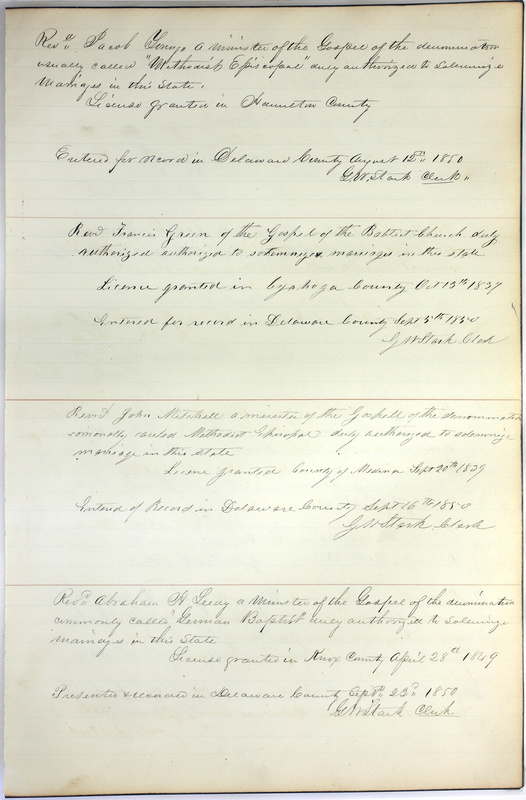 Revd. Jacob George a minister of the Gospel of the denomination
usually called "Methodist Episcopal" duly authorized to solemnize
Marriges in this State.
License granted in Hamilton County
Entered for record in Delaware County August 12th 1850
G. W. Stark Clerk
Revd Francis Green of the Gospel of the Babtist Church duly
authorized authorized to solemnize mariages in this state
Licence granted in Cyahoga County Oct 13th 1837
Entered for record in Delaware County Sept 5th 1850
G W Stark Clerk
Revrd John Mitchell a minister of the Gospell of the denomination
commonly called Methodist Episcopal duly authorized to solemnize
marriage in this State
Licence granted County of Medina Sept 20th 1839
Entered of Record in Delaware County Sept 16th 1850
G W Stark Clerk
Revd. Abraham H Leedy a Minister of the Gospel of the denomination
commonly called "German Baptist" duly authorized to solemnize
marriages in this State
License granted in Knox County April 28th 1849
Presented & recorded in Delaware County Sept. 23d. 1850
G W Stark Clerk